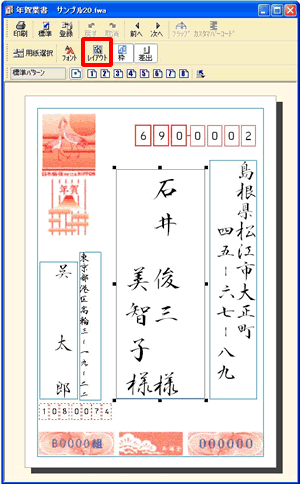 年賀葉書 サンプル20.fwa
印刷 標準 登録 戻す 取消 前へ 次へ フラップ カスタマバーコード
用紙選択 フォント レイアウト 枠 差出
標準パターン 1 2 3 4 5 6 7 8
690-0002
日本郵便 NIPPON
年賀
島根県松江市大正町
四五ー六七ー八九
石井 俊三 様
美智子 様
東京都港区高輪三ー一九ー二二
呉 太郎
1080074
B0000組 000000